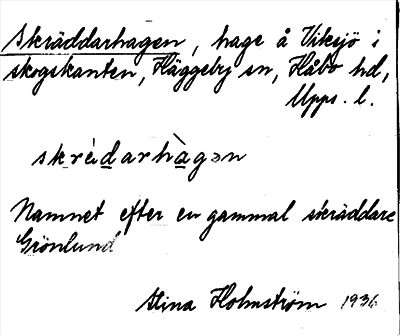 Skräddarhagen, hage å Viksjö i
skogskanten, Häggeby sn, Håbo hd,
Upps. l.
skrè̀darhàgən
Namnet efter en gammal skräddare
Grönlund
Stina Holmström 1936